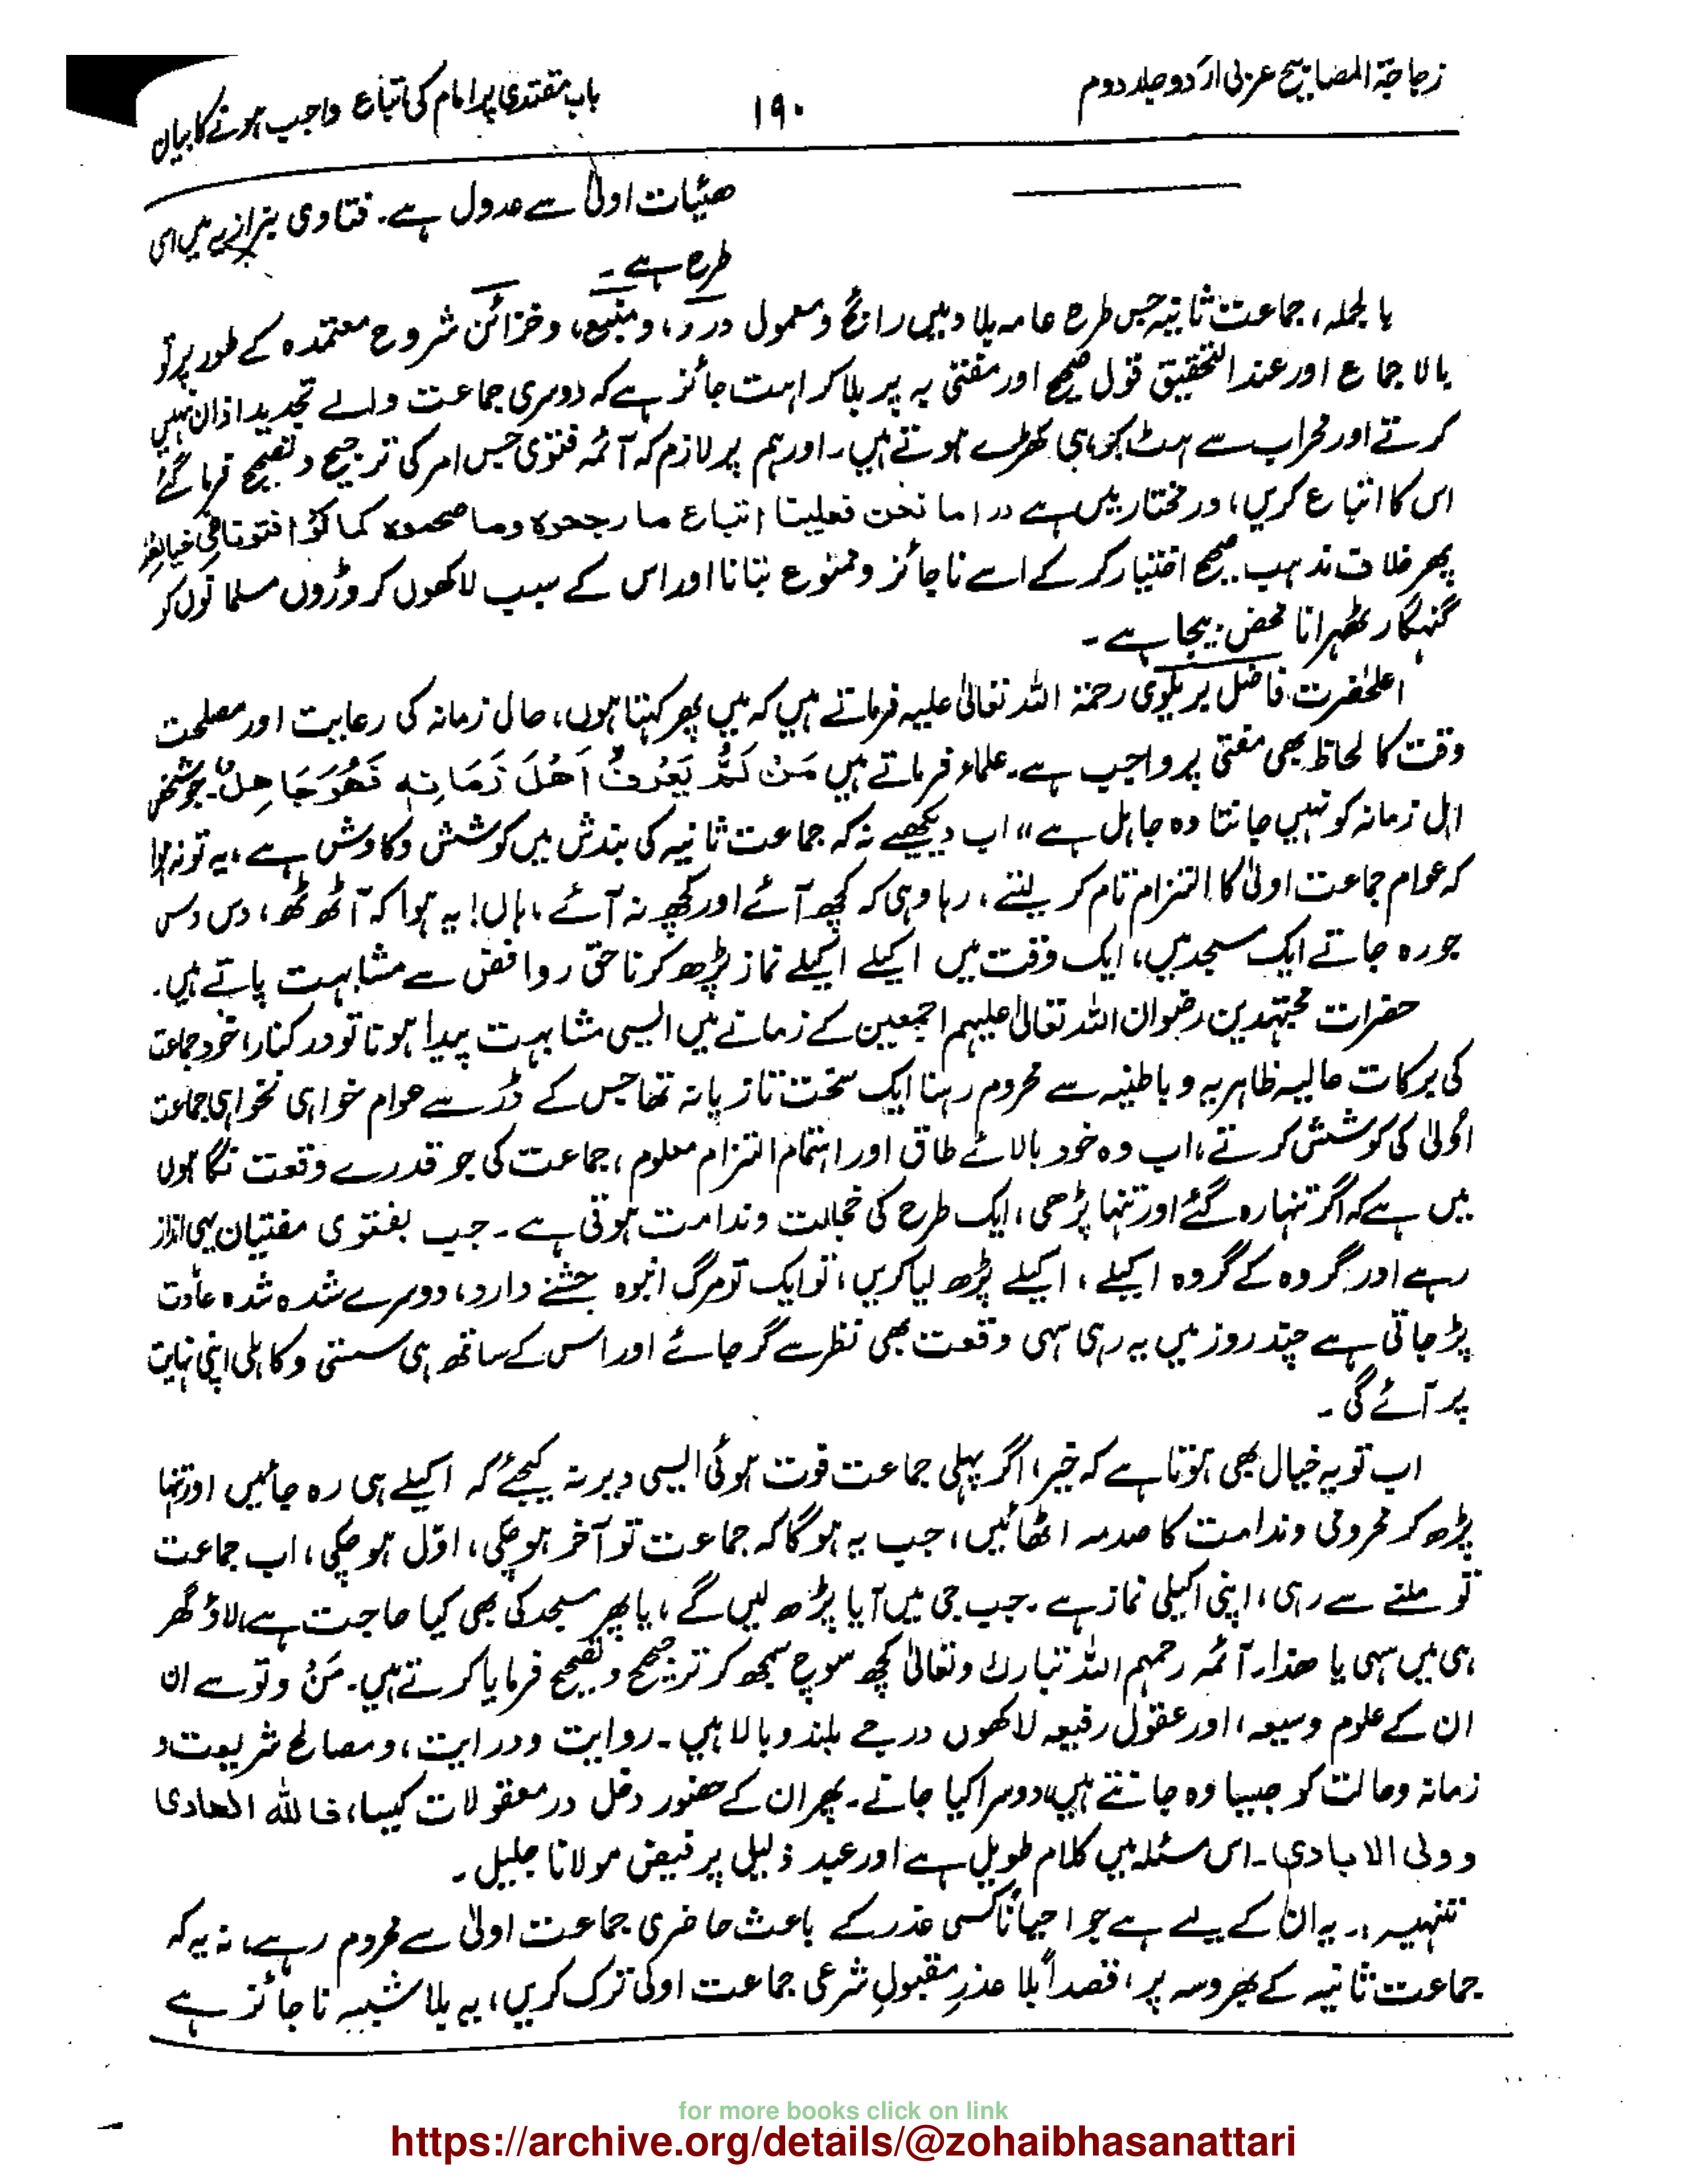 زجاجۃ المصابیح عربی اردو جلد دوم
۱۹۰
باب مقتدی پر امام کی اتباع واجب ہونے کا بیان
ھیٔات اولیٰ سے عدول ہے۔ فتاوی بزازیہ میں اسی
طرح ہے۔
بالجملہ، جماعت ثانیہ جس طرح عامہ بلاد میں رائج و معمول درر، و منبع، و خزائن شروح معتمدہ کے طور پر تو
بالاجماع اور عند التحقیق قول صحیح اور مفتی بہ پر بلا کراہت جائز ہے کہ دوسری جماعت والے تجدید اذان نہیں
کرتے اور محراب سے ہٹ کر ہی کھڑے ہوتے ہیں۔ اور ہم پر لازم کہ آئمہ فتوٰی جس امر کی ترجیح و تصحیح فرما گئے
اس کا اتباع کریں، در مختار میں ہے ،، اما نحن فعلینا اتباع ما رجحوہ وما صححوہ کما لوا فتونا فی حیاتھم
پھر خلاف مذہب صحیح اختیار کر کے اسے ناجائز و ممنوع بتانا اور اس کے سبب لاکھوں کروڑوں مسلمانوں کو
گنہگار ٹھہرانا محض بیجا ہے۔
اعلحٰضرت فاضل بریلوی رحمۃ اللہ تعالیٰ علیہ فرماتے ہیں کہ میں پھر کہتا ہوں، حال زمانہ کی رعایت اور مصلحت
وقت کا لحاظ بھی مفتی پر واجب ہے۔ علماء فرماتے ہیں مَنْ لَمْ يَعْرِفْ اَھْلَ زَمَانِہٖ فَھُوَ جَاھِلٌ۔ جو شخص
اہل زمانہ کو نہیں جانتا وہ جاہل ہے ،، اب دیکھیے نہ کہ جماعت ثانیہ کی بندش میں کوشش و کاوش ہے، یہ تو نہ ہوا
کہ عوام جماعت اولیٰ کا التزام تام کر لیتے، رہا وہی کہ کچھ آئے اور کچھ نہ آئے، ہاں! یہ ہوا کہ آٹھ آٹھ، دس دس
جو رہ جاتے ایک مسجد میں، ایک وقت میں اکیلے اکیلے نماز پڑھ کر ناحق روافض سے مشابہت پاتے ہیں۔
حضرات مجتہدین رضوان اللہ تعالیٰ علیہم اجمعین کے زمانے میں ایسی مشابہت پیدا ہونا تو درکنار، خود جماعت
کی برکات عالیہ ظاہریہ و باطنیہ سے محروم رہنا ایک سخت تازیانہ تھا جس کے ڈر سے عوام خواہی نخواہی جماعت
اُولیٰ کی کوشش کرتے، اب وہ خود بالائے طاق اور اہتمام التزام معلوم، جماعت کی جو قدرے وقعت نگاہوں
میں ہے کہ اگر تنہا رہ گئے اور تنہا پڑھی، ایک طرح کی خجالت و ندامت ہوتی ہے۔ جب بفتوی مفتیان یہی انداز
رہے اور گروہ کے گروہ اکیلے، اکیلے پڑھ لیا کریں، تو ایک تو مرگ انبوہ جشنے دارد، دوسرے شدہ شدہ عادت
پڑ جاتی ہے چند روز میں یہ رہی سہی وقعت بھی نظر سے گر جائے اور اس کے ساتھ ہی سستی و کاہلی اپنی نہایت
پر آئے گی۔
اب تو یہ خیال بھی ہوتا ہے کہ خیر، اگر پہلی جماعت فوت ہوئی ایسی دیر نہ کیجئے کہ اکیلے ہی رہ جائیں اور تنہا
پڑھ کر محرومی و ندامت کا صدمہ اٹھائیں، جب یہ ہوگا کہ جماعت تو آخر ہو چکی، اوّل ہو چکی، اب جماعت
تو ملنے سے رہی، اپنی اکیلی نماز ہے۔ جب جی میں آیا پڑھ لیں گے، یا پھر مسجد کی بھی کیا حاجت ہے، لاؤ گھر
ہی میں سہی یا ھذا۔ آئمہ رحمہم اللہ تبارک وتعالیٰ کچھ سوچ سمجھ کر ترجیح و تصحیح فرمایا کرتے ہیں۔ مَنْ و تو سے ان
ان کے علوم وسیعہ، اور عقول رفیعہ لاکھوں درجے بلند و بالا ہیں۔ روایت و درایت، و مصالح شریعت و
زمانہ و حالت کو جیسا وہ جانتے ہیں، دوسرا کیا جانے۔ پھر ان کے حضور دخل در معقولات کیسا، فاللہ الھادی
و ولی الایادی۔ اس مسئلہ میں کلام طویل ہے اور عبد ذلیل پر فیض مولانا جلیل۔
تنہیہ :۔ یہ ان کے لیے ہے جو احیاناً کسی عذر کے باعث حاضری جماعت اولیٰ سے محروم رہے، نہ یہ کہ
جماعت ثانیہ کے بھروسہ پر، قصداً بلا عذرِ مقبولِ شرعی جماعت اولیٰ ترک کریں، یہ بلا شبہ ناجائز ہے
for more books click on link
https://archive.org/details/@zohaibhasanattari